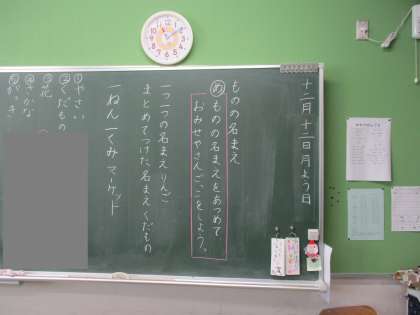 十二月十二日月よう日
ものの名まえ
め ものの名まえをあつめて
おみせやさんごっこをしよう。
一つ一つの名まえ りんご
まとめてつけた名まえ くだもの
一ねん一くみ マーケット
①やさい
②くだもの
③花
④さかな
⑤がっき